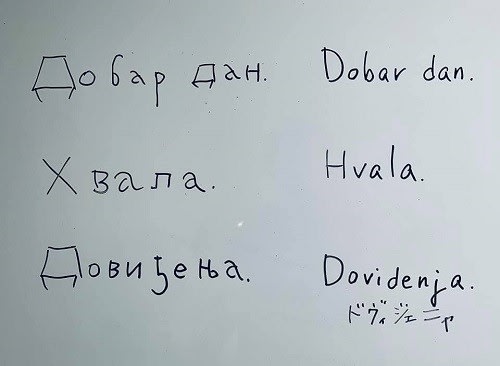 Добар дан. Dobar dan.
Хвала. Hvala.
Довиђења. Dovidenja.
ドヴィジェニャ